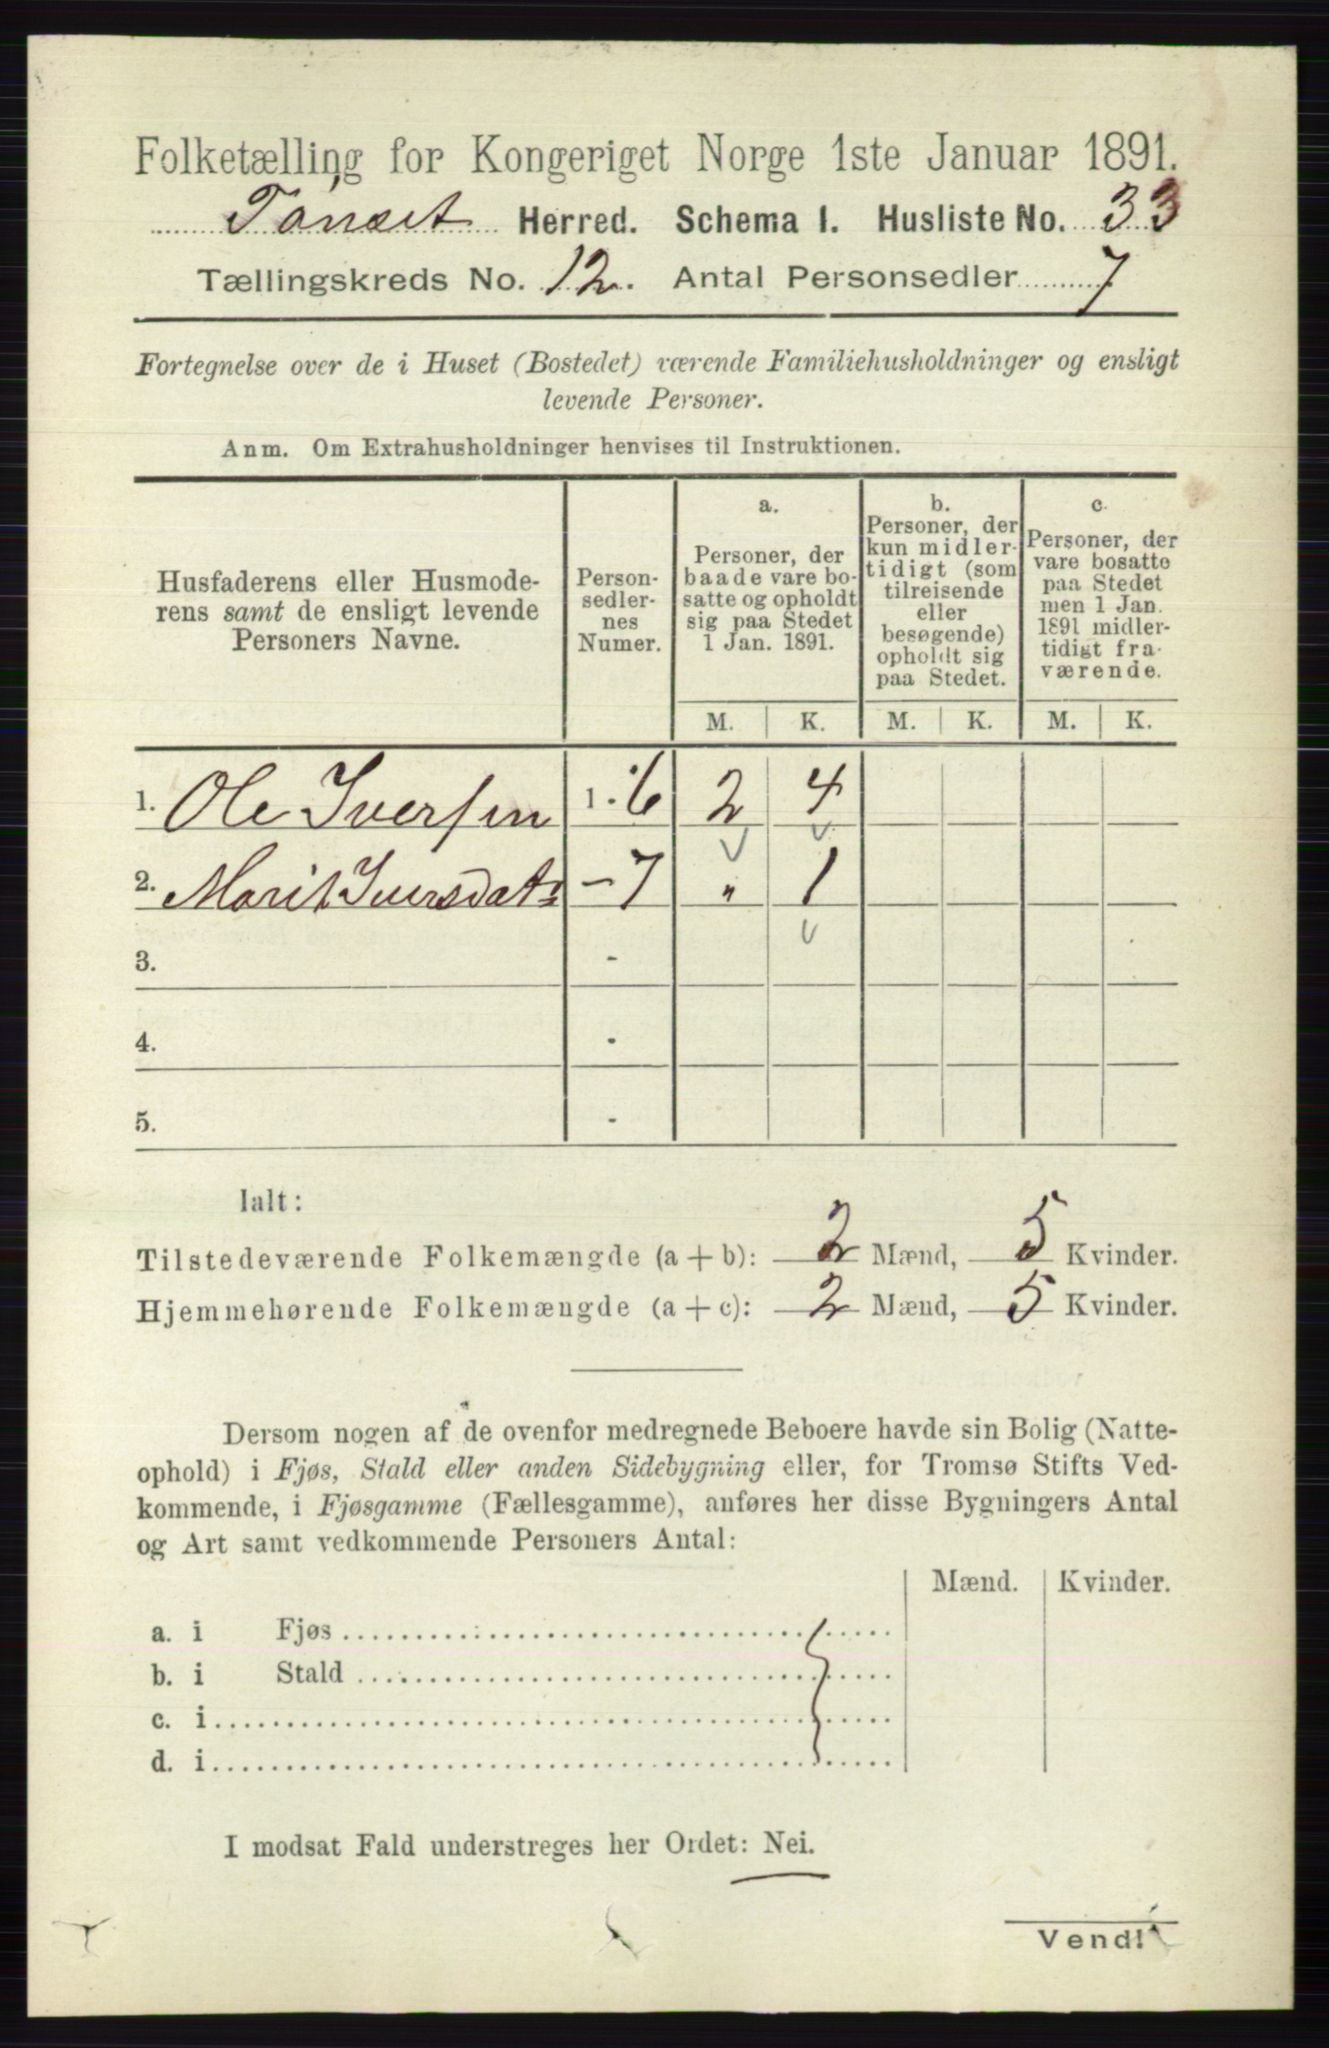 Folketælling for Kongeriget Norge 1ste Januar 1891.
Tónset Herred. Schema I. Husliste No. 33
Tællingskreds No. 12. Antal Personsedler 7
Fortegnelse over de i Huset (Bostedet) værende Familiehusholdninger og ensligt
levende Personer.
Anm. Om Extrahusholdninger henvises til Instruktionen.
Husfaderens eller Husmode-
rens samt de ensligt levende
Personers Navne.
Person-
sedler-
nes
Numer.
a.
Personer, der
baade vare bo-
satte og opholdt
sig paa Stedet
1 Jan. 1891.
b.
Personer, der
kun midler-
tidigt (som
tilreisende
eller
besøgende)
opholdt sig
paa Stedet.
c.
Personer, der
vare bosatte
paa Stedet
men 1 Jan.
1891 midler-
tidigt fra-
værende.
M. K. M. K. M. K.
1. Ole Iversen 1 - 6 2 4
2. Marit Iversdat: - 7 " 1
3. -
4. -
5. -
Ialt:
Tilstedeværende Folkemængde (a + b): 2 Mænd, 5 Kvinder.
Hjemmehørende Folkemængde (a + c): 2 Mænd, 5 Kvinder.
Dersom nogen af de ovenfor medregnede Beboere havde sin Bolig (Natte-
ophold) i Fjøs, Stald eller anden Sidebygning eller, for Tromsø Stifts Ved-
kommende, i Fjøsgamme (Fællesgamme), anføres her disse Bygningers Antal
og Art samt vedkommende Personers Antal:
Mænd. Kvinder.
a. i Fjøs
b. i Stald
c. i
d. i
I modsat Fald understreges her Ordet: Nei.
Vend!